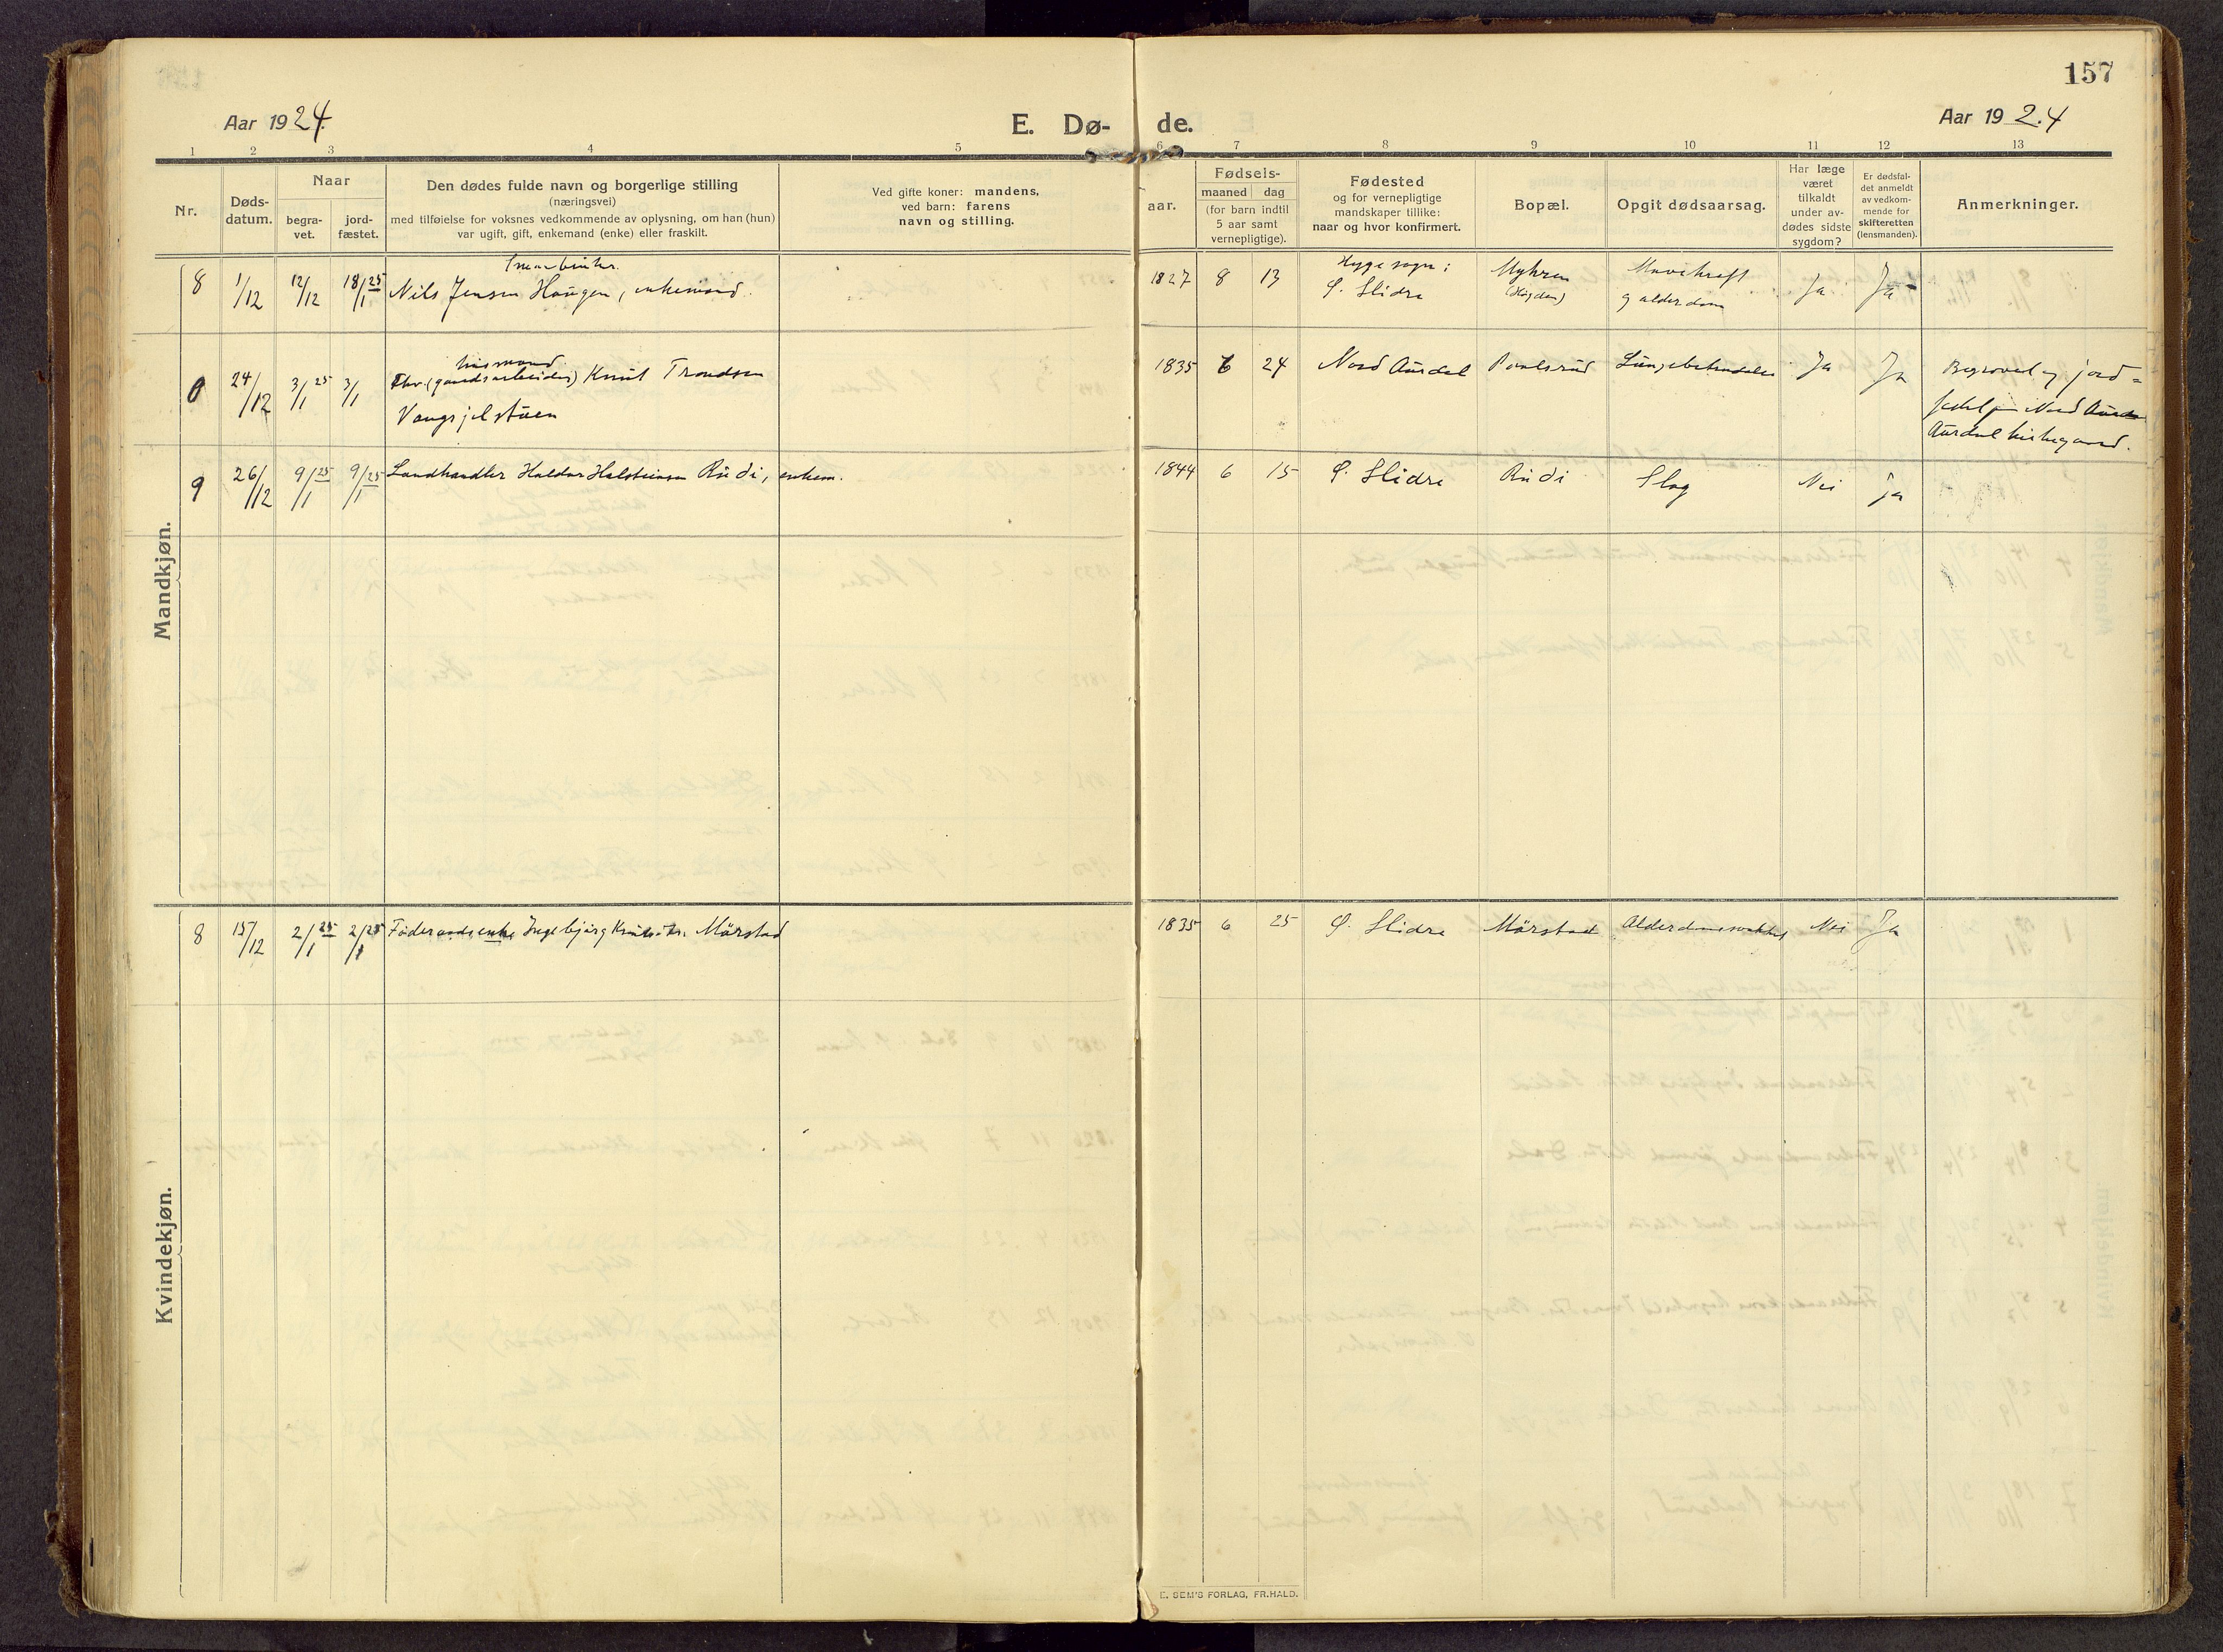 157
Aar 1924.
E. Dø- de.
Aar 192.4
1 2 3 4 5 6 7 8 9 10 11 12 13
Nr.
Døds-
datum.
Naar
begra-
vet.
jord-
fæstet.
Den dødes fulde navn og borgerlige stilling
(næringsvei)
med tilføielse for voksnes vedkommende av oplysning, om han (hun)
var ugift, gift, enkemand (enke) eller fraskilt.
Ved gifte koner: mandens,
ved barn: farens
navn og stilling.
aar.
Fødsels-
maaned dag
(for barn indtil
5 aar samt
vernepligtige).
Fødested
og for vernepligtige
mandskaper tillike:
naar og hvor konfirmert.
Bopæl.
Opgit dødsaarsag.
Har læge
været
tilkaldt
under av-
dødes sidste
sygdom?
Er dødsfal-
det anmeldt
av vedkom-
mende for
skifteretten
(lensmanden).
Anmerkninger.
Mandkjøn.
8 1/12 12/12 18/1 25 Nils Jensen Haugen, enkemand. 1827 8 13 Hegge sogn i
Ø. Slidre
Myhren
Mavekræft
og alderdom
Ja Ja
0 24/12 3/1 25 3/1 husmand
(gaardsarbeider) Knut Trondsen
Vangsjelstuen
1835 6 24 Nord Aurdal Paalsrud Lungebetendelse Ja Ja Begravet og jord=
fæstet paa Nord
Aurdal kirkegaard.
9 26/12 9/1 25 9/1 25 Landhandler Haldor Halsteinsen Rudi, enkem. 1844 6 15 Ø. Slidre Rudi Slag Nei ja
Kvindekjøn.
8 15/12 2/1 25 2/1 25 Føderaadsenke Ingebjørg Knutsdtr. Mörstad 1835 6 25 Ø. Slidre Mörstad Alderdomssvakhet Nei Ja
E. SEM'S FORLAG, FR.HALD.